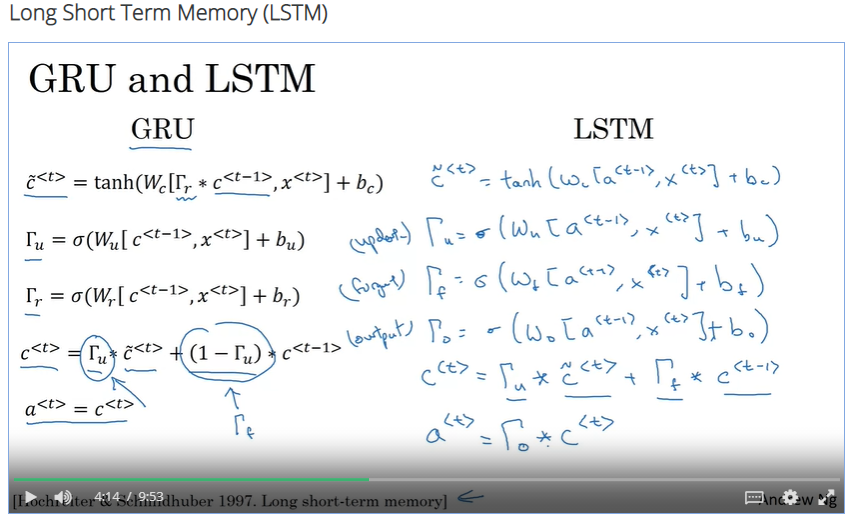 Long Short Term Memory (LSTM)
GRU and LSTM
GRU
c̃<t> = tanh(Wc[Γr * c<t−1>, x<t>] + bc)
Γu = σ(Wu[ c<t−1>, x<t>] + bu)
Γr = σ(Wr[ c<t−1>, x<t>] + br)
c<t> = Γu * c̃<t> + (1 − Γu) * c<t−1>
a<t> = c<t>
Γf
LSTM
c̃<t> = tanh(Wc[a<t-1>, x<t>] + bc)
(update) Γu = σ(Wu[a<t-1>, x<t>] + bu)
(forget) Γf = σ(Wf[a<t-1>, x<t>] + bf)
(output) Γo = σ(Wo[a<t-1>, x<t>] + bo)
c<t> = Γu * c̃<t> + Γf * c<t-1>
a<t> = Γo * c<t>
4:14 / 9:53
[Hochreiter & Schmidhuber 1997. Long short-term memory] ←
Andrew Ng